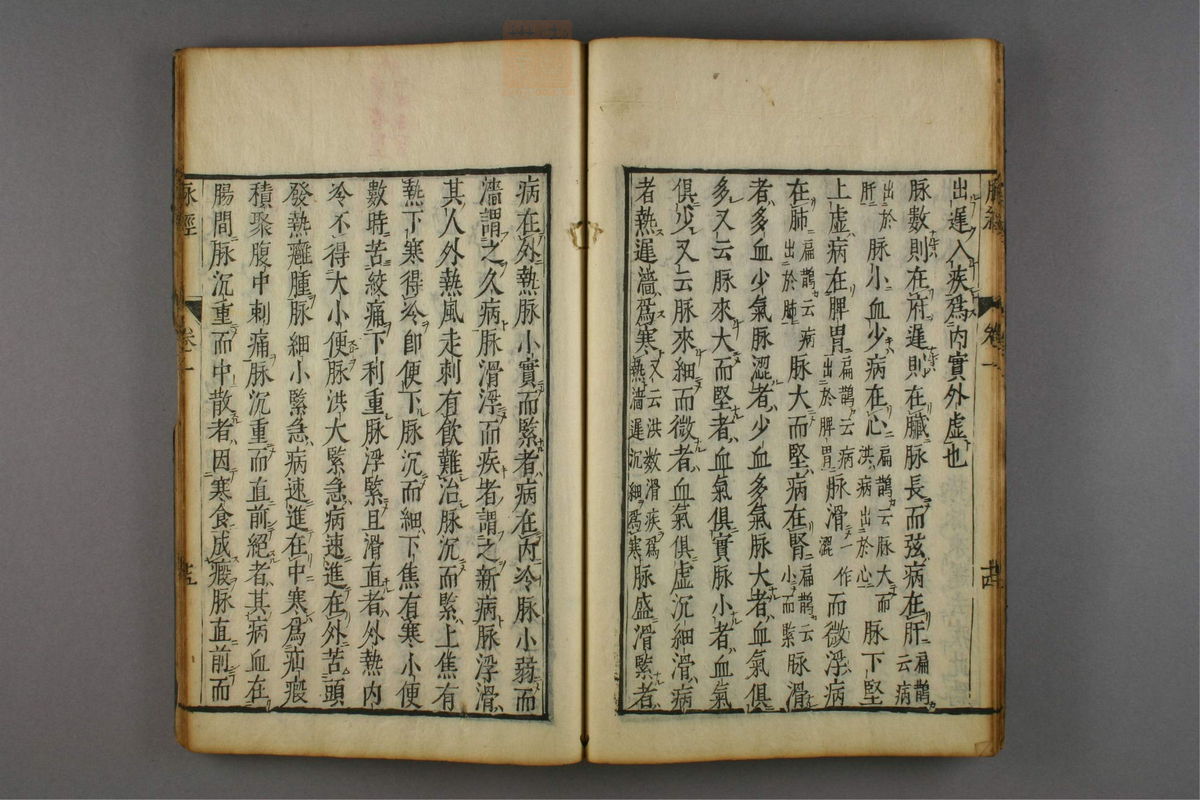 出遲入疾爲內實外虛也
脉數則在府遲則在臟脉長而弦病在肝扁鵲云病
出於肝脉小血少病在心扁鵲云脉大而洪病出於心脉下堅
上虛病在脾胃扁鵲云病出於脾胃脉滑一作澀而微浮病
在肺扁鵲云病出於肺脉大而堅病在腎扁鵲云小而緊脉滑
者多血少氣脉澀者少血多氣脉大者血氣俱
多又云脉來大而堅者血氣俱實脉小者血氣
俱少又云脉來細而微者血氣俱虛沉細滑病
者熱遲濇爲寒又云洪數滑疾爲熱濇遲沉細爲寒脉盛滑緊者
病在外熱脉小實而緊者病在內冷脉小弱而
濇謂之久病脉滑浮而疾者謂之新病脉浮滑
其人外熱風走刺有飲難治脉沉而緊上焦有
熱下寒得冷卽便下脉沉而細下焦有寒小便
數時苦絞痛下利重脉浮緊且滑直者外熱內
冷不得大小便脉洪大緊急病速進在外苦頭
發熱癰腫脉細小緊急病速進在中寒爲疝瘕
積聚腹中刺痛脉沉重而直前絕者其病血在
腸間脉沉重而中散者因寒食成瘕脉直前而
脉經
卷一